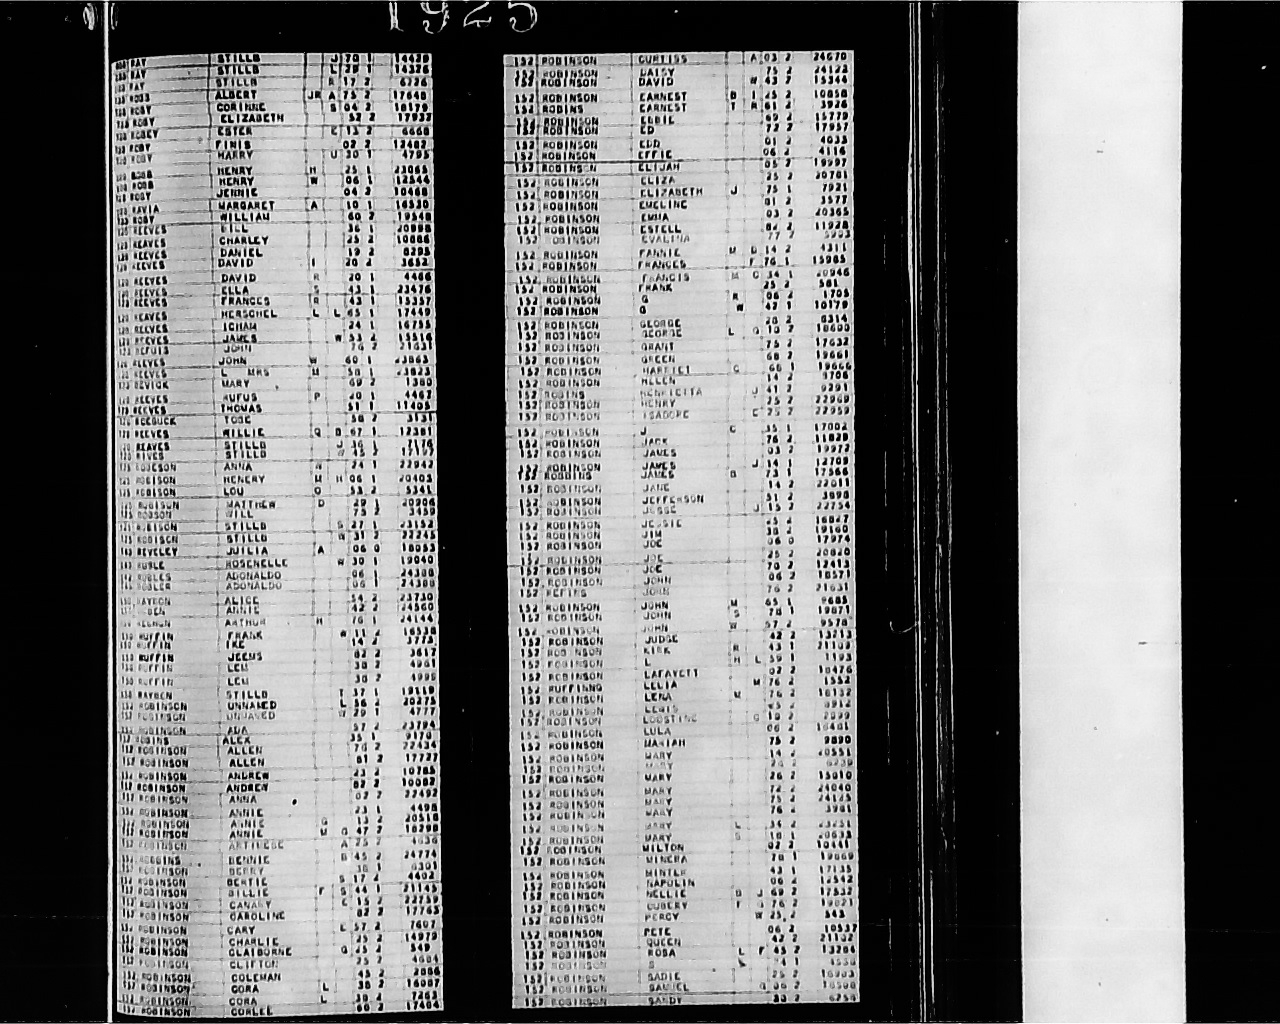 1925
RAY STILLB J 70 1 14428
RAY STILLB L 29 1 14326
RAY STILLB R 17 2 6236
ROSS ALBERT JR A 75 2 17648
ROBY CORINNE S 04 2 18179
ROBY ELIZABETH 52 2 17937
ROBEY ESTER E 13 2 6668
ROBY FINIS 02 2 12482
ROBY HARRY U 30 1 4795
HENRY H 25 1 23065
HENRY W 06 1 12544
ROBY JENNIE 04 2 10468
RAVIA MARGARET A 10 1 16530
ROBY WILLIAM 60 2 19548
REEVES BILL 36 1 20898
REAVES CHARLEY 25 2 10886
REEVES DANIEL 19 2 8295
REEVES DAVID I 20 2 3652
REEVES DAVID R 20 1 4466
REEVES ELLA S 43 1 23476
REEVES FRANCES R 43 1 15357
REAVES HERSCHEL L L 65 1 17449
REEVES ICHAM 24 1 16755
REEVES JAMES W 53 2 15516
JOHN 76 2
REEVES JOHN W 60 1 23863
REEVES L MRS M 58 1 23823
MARY 69 2 1380
REEVES RUFUS P 20 1 4467
REEVES THOMAS 51 1 11405
ROEBUCK TOBE 58 2 3131
REEVES WILLIE Q B 67 1 12381
REAVES STILLB J 36 1 7176
RIVES STILLB W 45 2 17197
ROBESON ANNA N 24 1 22942
ROBISON HENERY M H 06 1 20403
ROBISON LOU O 53 2 5341
ROBISON MATTHEW D 29 1 20906
ROBSON WILL 75 2 3459
ROBISON STILLB S 27 1 23152
ROBISON STILLB W 31 2 22245
REVELEY JUILIA A 06 0 18053
RUBLE ROSENELLE W 30 1 19040
ROBLES ADONALDO 06 1 24380
ROBLER ADONALDO 06 1 24380
RAYBON ALICE 54 2 23730
ANNIE 42 2 24560
ARTHUR H 76 1 24144
RUFFIN FRANK W 11 2 16538
RUFFIN IKE 14 2 3773
RUFFIN JEEMS 82 2 3617
RUFFIN LEM 30 2 4961
RUFFIN LEM 30 2 4999
RAYBEN STILLB T 37 1 19119
ROBINSON UNNAMED L 56 2 20275
ROBINSON UNNAMED W 29 1 4777
ROBINSON ADA 57 2 23794
ROBINS ALEX 35 1 9170
ROBINSON ALLEN 76 2 22434
ROBINSON ALLEN 81 2 17727
ROBINSON ANDREW 23 2 10785
ROBINSON ANDREW 82 2 10082
ROBINSON ANNA 02 2 22492
ROBINSON ANNIE 23 1 4498
ROBINSON ANNIE G 13 2 20518
ROBINSON ANNIE M G 47 2 18298
ROBINSON ARTINESE A 25 2 4636
ROBBINS BENNIE B 45 2 24774
ROBINSON BERRY 38 1 6301
ROBINSON BERTIE S 17 2 4402
ROBINSON BILLIE F S 44 1 21145
ROBINSON CANARY E 15 2 22759
ROBINSON CAROLINE 82 2 17765
ROBINSON CARY E 57 2 7607
ROBINSON CHARLIE 25 2 14979
ROBINSON CLAIBORNE G 45 2 549
ROBINSON CLIFTON 25 2 4604
ROBINSON COLEMAN 45 2 2086
ROBINSON CORA L 38 2 16007
ROBINSON CORA L 38 2 7263
ROBINSON CORLEE 60 2 17404
152 ROBINSON CURTISS A 03 2 24670
152 ROBINSON DAISY 75 2 24122
152 ROBINSON DAVID W 43 2 15344
152 ROBINSON EARNEST D I 25 2 10858
152 ROBINS EARNEST T R 61 2 3926
152 ROBINSON ELBIE 69 2 15779
152 ROBINSON ED 72 2 17957
152 ROBINSON EDD 01 2 4033
152 ROBINSON EFFIE 06 2 4116
152 ROBINSON ELIJAH 05 2 19997
152 ROBINSON ELIZA 25 2 20701
152 ROBINSON ELIZABETH J 75 1 7921
152 ROBINSON EMELINE 01 2 3577
152 ROBINSON EMMA 03 2 20365
152 ROBINSON ESTELL 82 2 11928
152 ROBINSON EVALINA 77 2
152 ROBINSON FANNIE M D 14 2 4311
152 ROBINSON FRANCES F 76 1 15985
152 ROBINSON FRANCIS M G 34 1 20946
152 ROBINSON FRANK 25 2 581
152 ROBINSON G R 06 2 1705
152 ROBINSON G W 42 1 10179
152 ROBINSON GEORGE 20 2 8314
152 ROBINSON GEORGE L G 10 2 18600
152 ROBINSON GRANT 75 2 17632
152 ROBINSON GREEN 68 2 19661
152 ROBINSON HARRIET C 66 1 19666
152 ROBINSON HELEN 14 2 9706
152 ROBINS HENRIETTA J 41 2 9291
152 ROBINSON HENRY 25 2 22969
152 ROBINSON ISADORE E 25 2 22959
152 ROBINSON J C 35 1 17002
152 ROBINSON JACK 76 2 11828
152 ROBINSON JAMES 03 2 19972
152 ROBINSON JAMES J 14 1 12708
152 ROBBINS JAMES B 73 1 17566
152 ROBINSON JANE 14 2 22011
152 ROBINSON JEFFERSON 51 2 3898
152 ROBINSON JESSE J 15 2 22754
152 ROBINSON JESSIE 25 2 16827
152 ROBINSON JIM 38 2 19160
152 ROBINSON JOE 06 0 17974
152 ROBINSON JOE 25 2 20820
152 ROBINSON JOE 70 2 12413
152 ROBINSON JOHN 06 2 18571
152 JOHN 76 2 21631
152 ROBINSON JOHN M 65 1 9685
152 ROBINSON JOHN S 78 1 19871
152 ROBINSON JOHN W 57 2 9578
152 ROBINSON JUDGE 42 2 13213
152 ROBINSON KIRK R 43 1 21103
152 ROBINSON L H L 59 1 1193
152 ROBINSON LAFAYETT 02 2 10476
152 RUFFINNG LELIA M 76 2 1552
152 ROBINSON LENA M 76 2 18132
152 ROBINSON LEWIS 45 2 8912
152 ROBINSON LOOSTINE G 10 2 2099
152 ROBINSON LULA 06 2 16481
152 ROBINSON MARIAH 75 2 9890
152 ROBINSON MARY 14 2 20551
152 ROBINSON MARY
152 ROBINSON MARY 26 2 15010
152 ROBINSON MARY 72 2 24040
152 ROBINSON MARY 75 2 24125
152 ROBINSON MARY 76 2 3981
152 ROBINSON MARY L 34 2 23251
152 ROBINSON MARY S 10 1 20635
152 ROBINSON MILTON 02 2 10441
152 ROBINSON MINERA 78 1 19869
152 ROBINSON MINTER 43 1 17135
152 ROBINSON NAPOLIN 06 2 12542
152 ROBINSON NELLIE B J 69 2 17532
152 ROBINSON F G 76 2 19021
152 ROBINSON PERCY W 25 2 543
152 ROBINSON PETE 06 2 10537
152 ROBINSON QUEEN 42 2 21132
152 ROBINSON ROSA L F 45 2 13284
152 ROBINSON S
152 ROBINSON SADIE 25 2 16903
152 ROBINSON SAMUEL G 06 2
152 ROBINSON SANDY 33 2